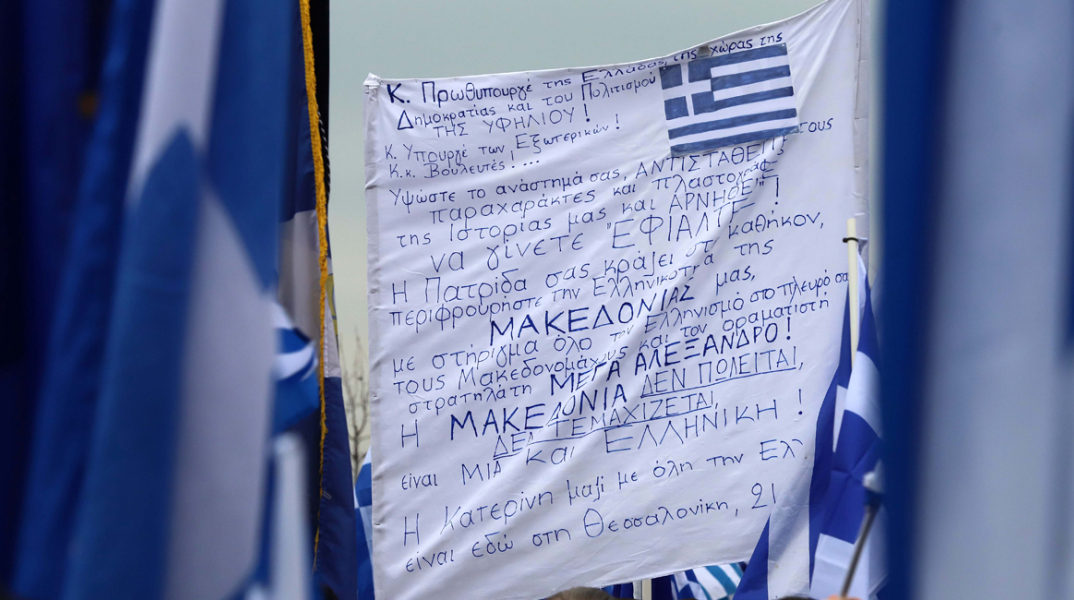 Κ. Πρωθυπουργέ της Ελλάδας, της χώρας της
Δημοκρατίας και του Πολιτισμού
ΤΗΣ ΥΦΗΛΙΟΥ!
Κ. Υπουργέ των Εξωτερικών!
Κ.κ. Βουλευτές!...
Υψώστε το ανάστημά σας, ΑΝΤΙΣΤΑΘΕΙΤΕ τους
παραχαράκτες και πλαστογράφ
της Ιστορίας μας και ΑΡΝΗΘΕ
να γίνετε "ΕΦΙΑΛΤΕ"!
Η Πατρίδα σας κράζει στ καθήκον,
περιφρουρήστε την Ελληνικότητα της
ΜΑΚΕΔΟΝΙΑΣ μας,
με στήριγμα όλο τον Ελληνισμό στο πλευρό σα
τους Μακεδονομάχους και τον οραματιστή
στρατηλάτη ΜΕΓΑ ΑΛΕΞΑΝΔΡΟ!
Η ΜΑΚΕΔΟΝΙΑ ΔΕΝ ΠΩΛΕΙΤΑΙ,
ΔΕΝ ΤΕΜΑΧΙΖΕΤΑΙ,
είναι ΜΙΑ και ΕΛΛΗΝΙΚΗ!
Η Κατερίνη μαζί με όλη την Ελ
είναι εδώ στη Θεσσαλονίκη, 21